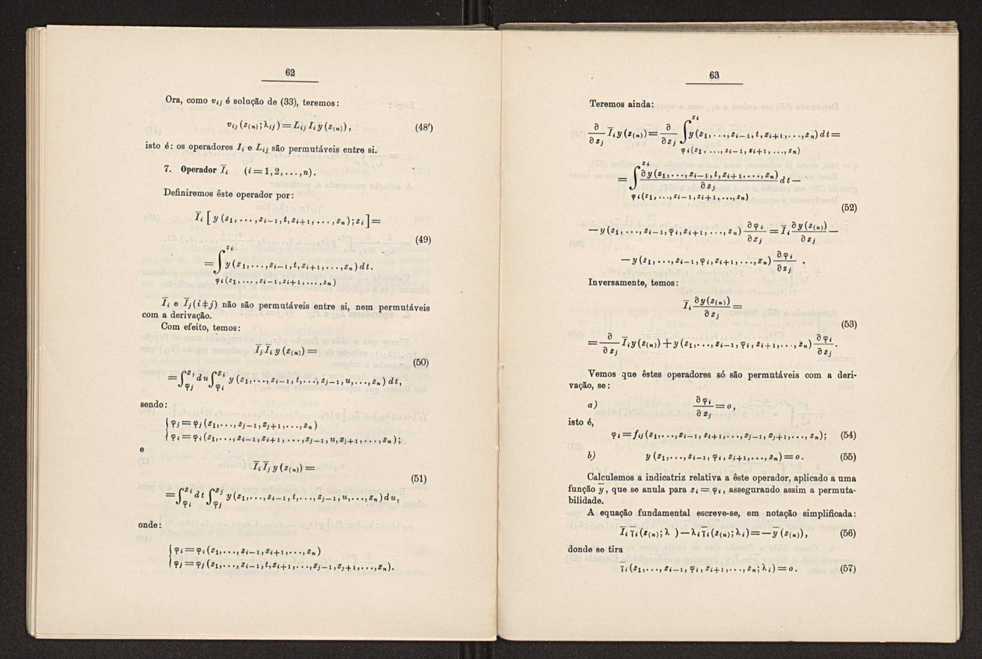 62
Ora, como v_{ij} é solução de (33), teremos:
v_{ij} (z_{(n)}; λ_{ij}) = L_{ij} I_i y (z_{(n)}), (48')
isto é: os operadores I_i e L_{ij} são permutáveis entre si.
7. Operador Ī_i (i = 1, 2, ..., n).
Definiremos êste operador por:
Ī_i [ y (z_1, ..., z_{i-1}, t, z_{i+1}, ..., z_n); z_i ] =
(49)
= ∫_{φ_i(z_1, ..., z_{i-1}, z_{i+1}, ..., z_n)}^{z_i} y (z_1, ..., z_{i-1}, t, z_{i+1}, ..., z_n) dt.
Ī_i e Ī_j (i ‡ j) não são permutáveis entre si, nem permutáveis
com a derivação.
Com efeito, temos:
Ī_j Ī_i y (z_{(n)}) =
(50)
= ∫_{φ_j}^{z_j} du ∫_{φ_i}^{z_i} y (z_1, ..., z_{i-1}, t, ..., z_{j-1}, u, ..., z_n) dt,
sendo:
{ φ_j = φ_j (z_1, ..., z_{j-1}, z_{j+1}, ..., z_n)
{ φ_i = φ_i (z_1, ..., z_{i-1}, z_{i+1}, ..., z_{j-1}, u, z_{j+1}, ..., z_n);
e
Ī_i Ī_j y (z_{(n)}) =
(51)
= ∫_{φ_i}^{z_i} dt ∫_{φ_j}^{z_j} y (z_1, ..., z_{i-1}, t, ..., z_{j-1}, u, ..., z_n) du,
onde:
{ φ_i = φ_i (z_1, ..., z_{i-1}, z_{i+1}, ..., z_n)
{ φ_j = φ_j (z_1, ..., z_{i-1}, t, z_{i+1}, ..., z_{j-1}, z_{j+1}, ..., z_n).
63
Teremos ainda:
∂/∂z_j Ī_i y (z_{(n)}) = ∂/∂z_j ∫_{φ_i(z_1, ..., z_{i-1}, z_{i+1}, ..., z_n)}^{z_i} y (z_1, ..., z_{i-1}, t, z_{i+1}, ..., z_n) dt =
= ∫_{φ_i(z_1, ..., z_{i-1}, z_{i+1}, ..., z_n)}^{z_i} ∂y (z_1, ..., z_{i-1}, t, z_{i+1}, ..., z_n)/∂z_j dt —
(52)
— y (z_1, ..., z_{i-1}, φ_i, z_{i+1}, ..., z_n) ∂φ_i/∂z_j = Ī_i ∂y (z_{(n)})/∂z_j —
— y (z_1, ..., z_{i-1}, φ_i, z_{i+1}, ..., z_n) ∂φ_i/∂z_j .
Inversamente, temos:
Ī_i ∂y (z_{(n)})/∂z_j =
(53)
= ∂/∂z_j Ī_i y (z_{(n)}) + y (z_1, ..., z_{i-1}, φ_i, z_{i+1}, ..., z_n) ∂φ_i/∂z_j.
Vemos que êstes operadores só são permutáveis com a deri-
vação, se:
a) ∂φ_i/∂z_j = o,
isto é,
φ_i = f_{ij} (z_1, ..., z_{i-1}, z_{i+1}, ..., z_{j-1}, z_{j+1}, ..., z_n); (54)
b) y (z_1, ..., z_{i-1}, φ_i, z_{i+1}, ..., z_n) = o. (55)
Calculemos a indicatriz relativa a êste operador, aplicado a uma
função ȳ, que se anula para z_i = φ_i, assegurando assim a permuta-
bilidade.
A equação fundamental escreve-se, em notação simplificada:
Ī_i γ̄_i (z_{(n)}; λ ) — λ_i γ̄_i (z_{(n)}; λ_i) = — ȳ (z_{(n)}), (56)
donde se tira
γ̄_i (z_1, ..., z_{i-1}, φ_i, z_{i+1}, ..., z_n; λ_i) = o. (57)